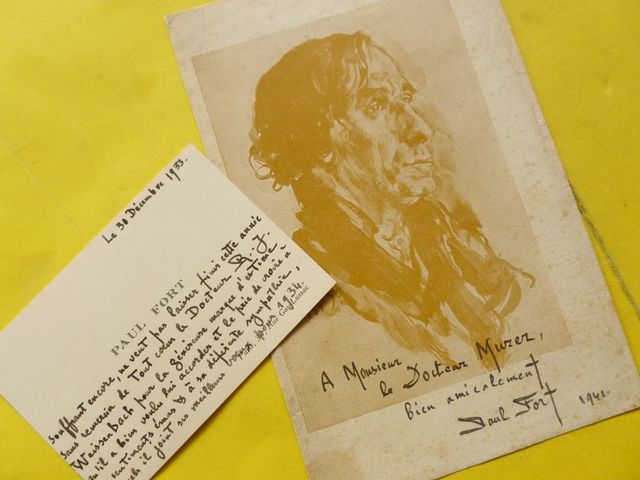 Le 30 Décembre 1933.
PAUL FORT
souffrant encore, ne veut pas laisser finir cette année
sans remercier de tout cœur le Docteur R.-J.
Weissenbach pour la généreuse marque d'estime
qu'il a bien voulu lui accorder et le prie de croire à
sentiments émus & à sa déférente sympathie,
il joint ses meilleurs 1934.
A Monsieur
le Docteur Murer,
bien amicalement
Paul Fort 1941.